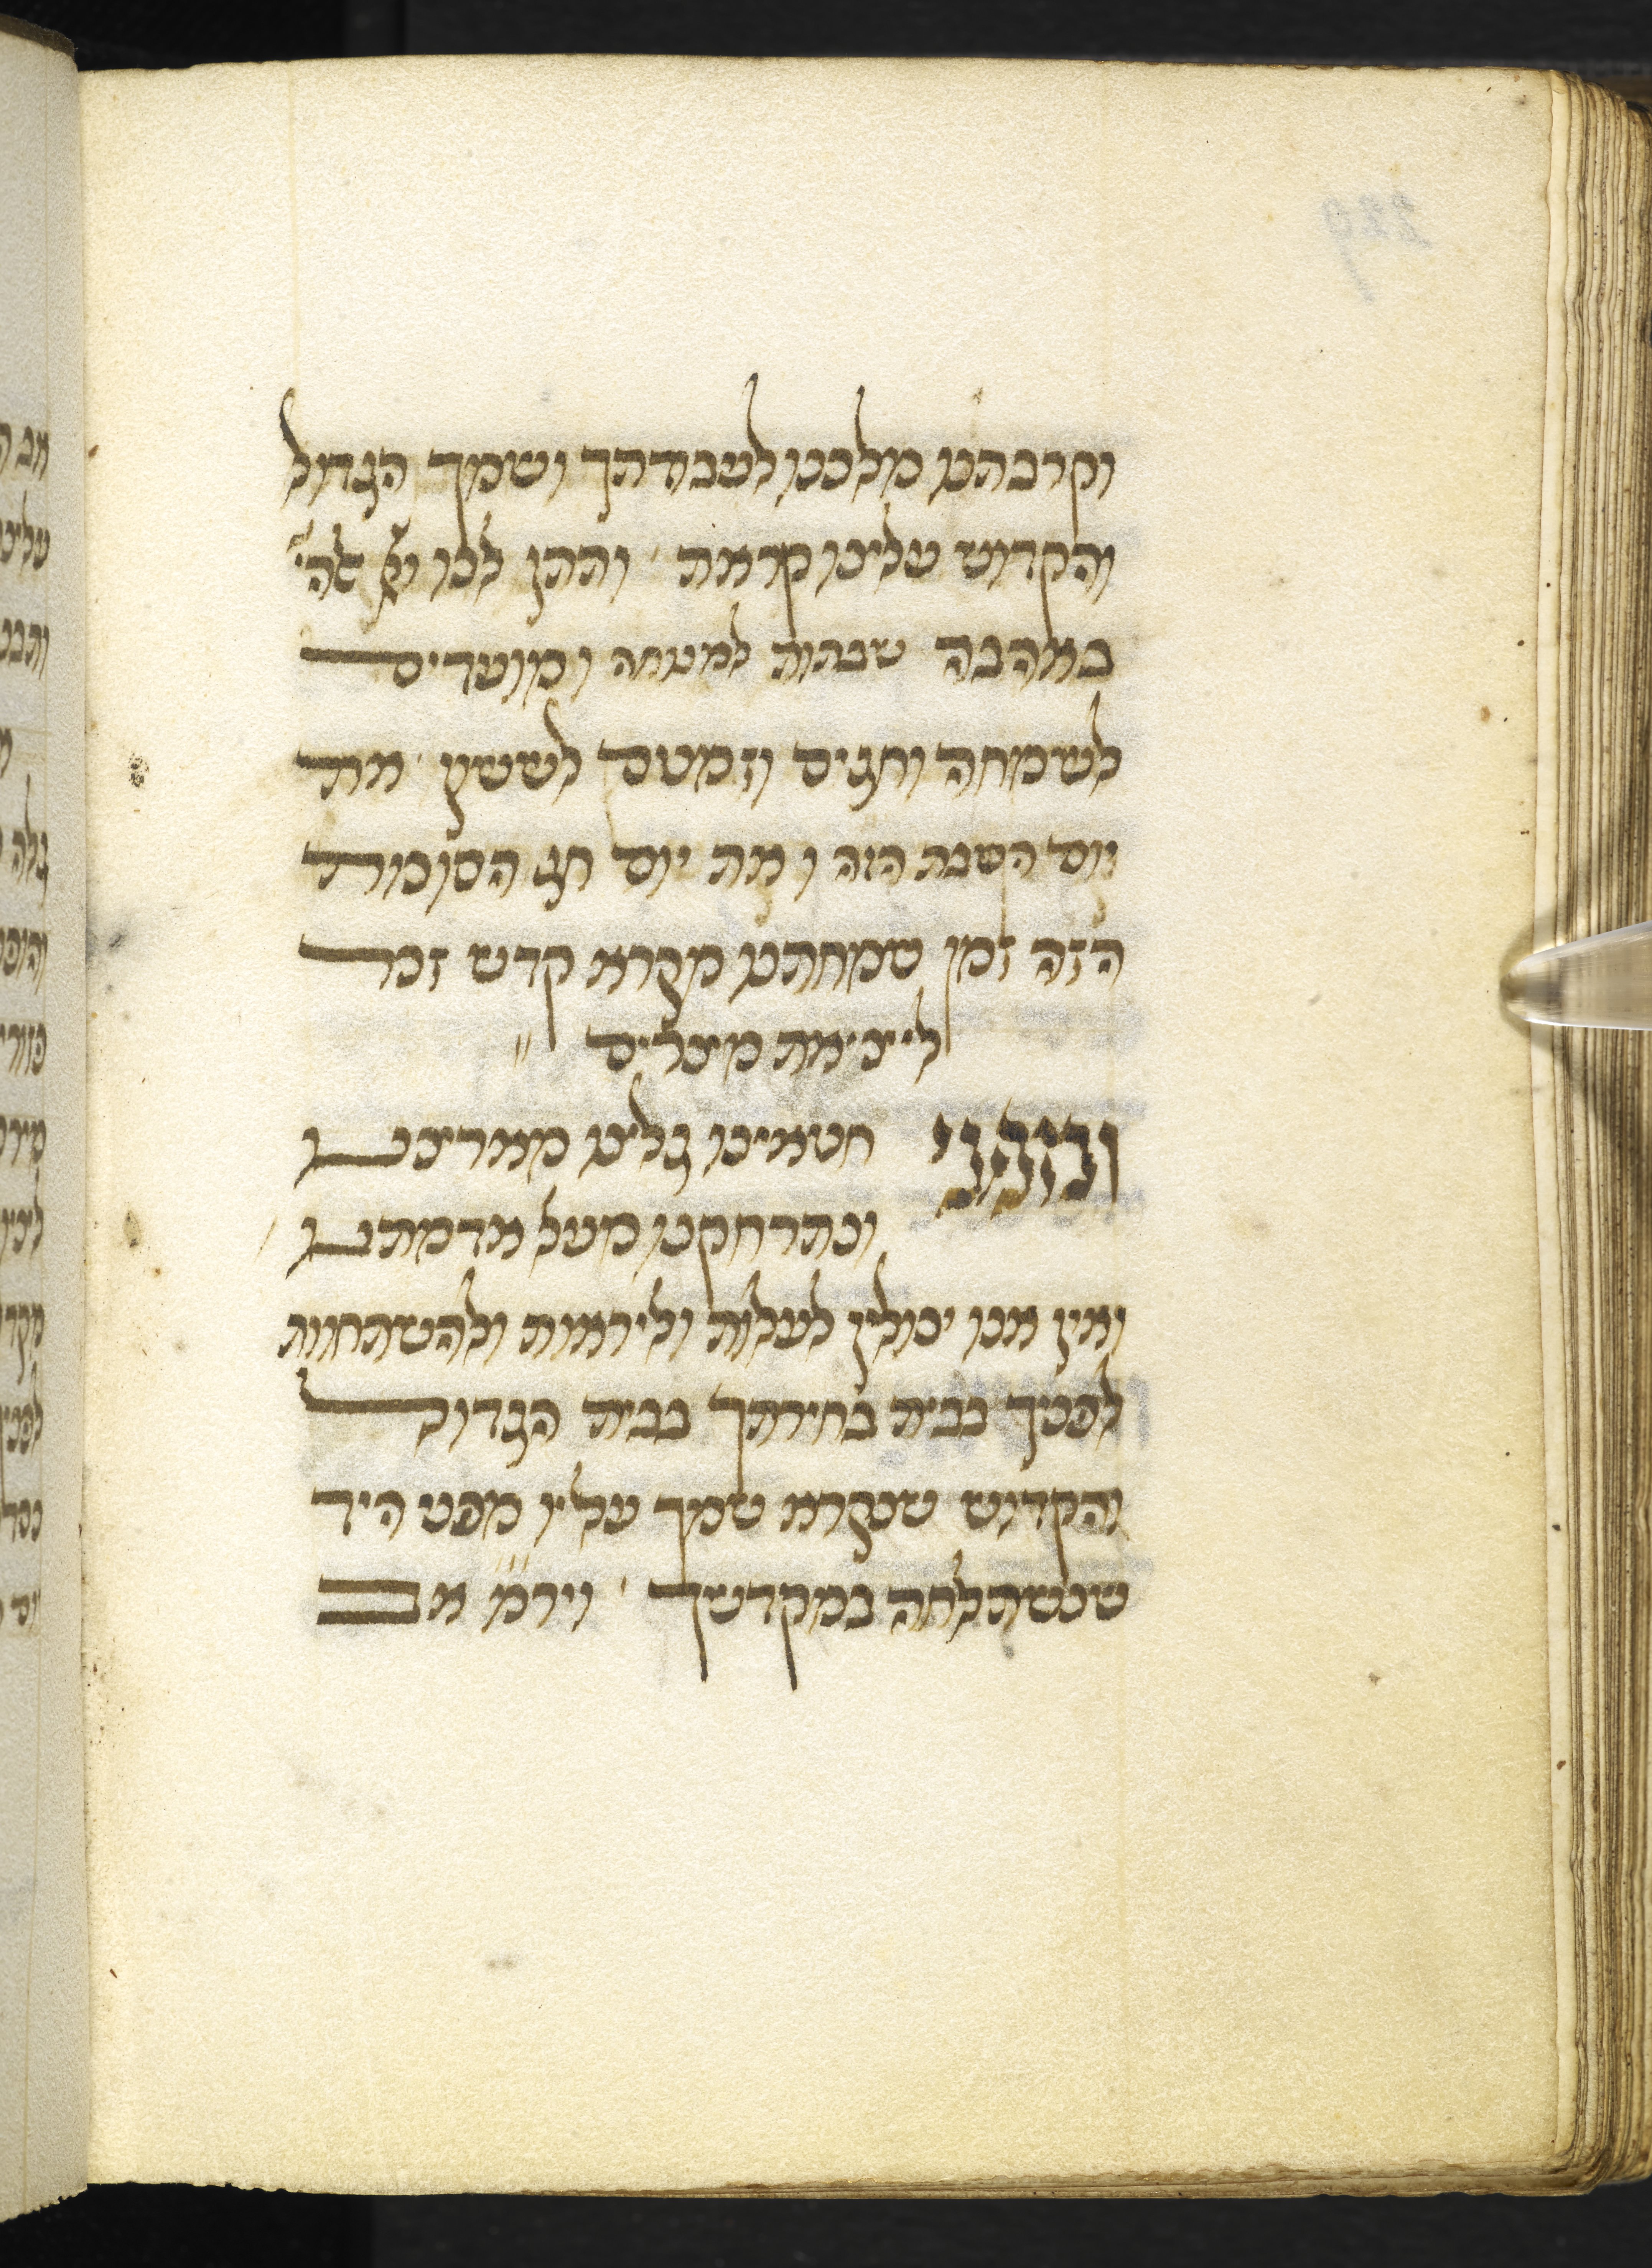 וקרבתנו מלכנו לעבודתך ושמך הגדול
והקדוש עלינו קראת ותתן לנו יי אלהי׳
באהבה שבתות למנוחה ומועדים
לשמחה וחגים וזמנים לששון את
יום השבת הזה ואת יום חג הסוכות
הזה זמן שמחתנו מקרא קדש זכר
ליציאת מצרים
ומפני חטאינו גלינו מארצנו
ונתרחקנו מעל אדמתנו
ואין אנו יכולין לעלות וליראות ולהשתחוות
לפניך בבית בחירתך בבית הגדול
והקדוש שנקרא שמך עליו מפני היד
שנשתלחה במקדשך ויר״מ״ אב